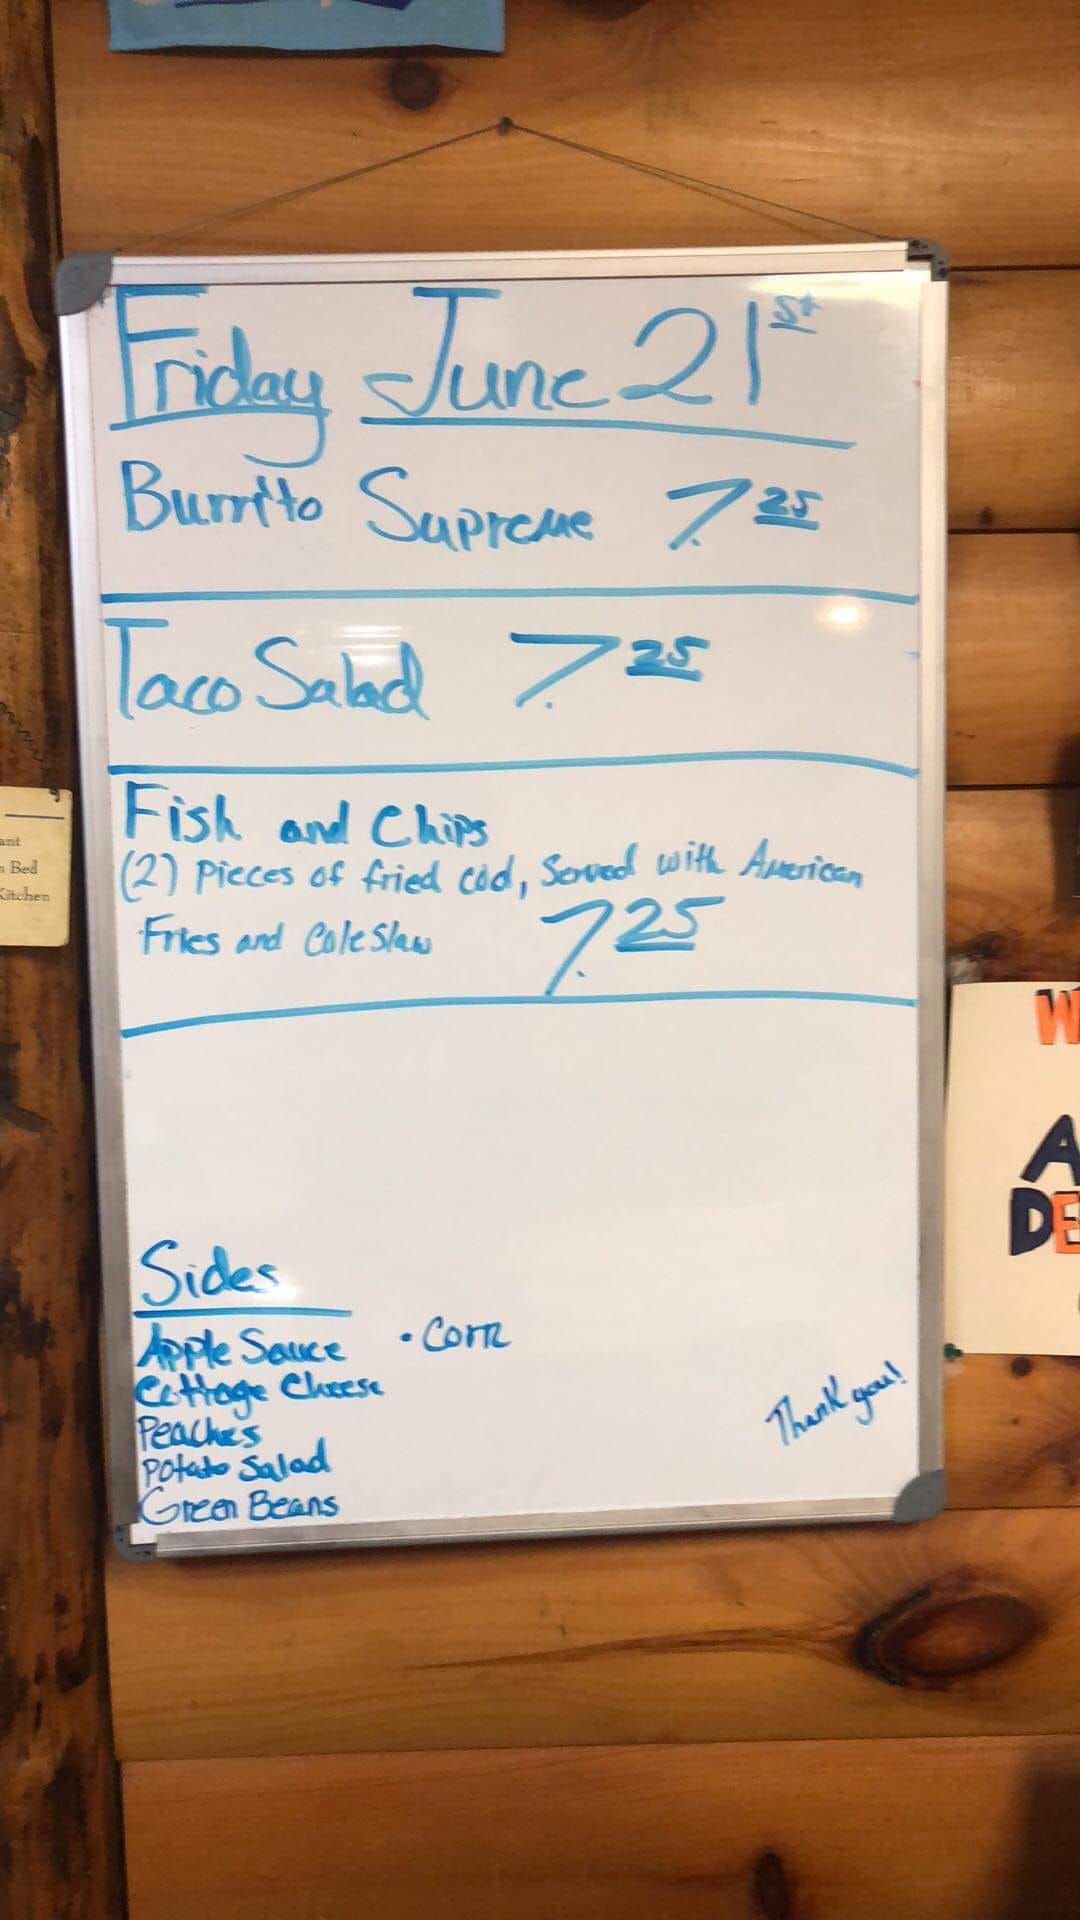 Friday June 21st
Burrito Supreme 7.25
Taco Salad 7.25
Fish and Chips
(2) Pieces of fried cod, Served with American
Fries and Cole Slaw 7.25
Sides
Apple Sauce • Corn
Cottage Cheese
Peaches
Potato Salad
Green Beans
Thank you!
Bed
Kitchen